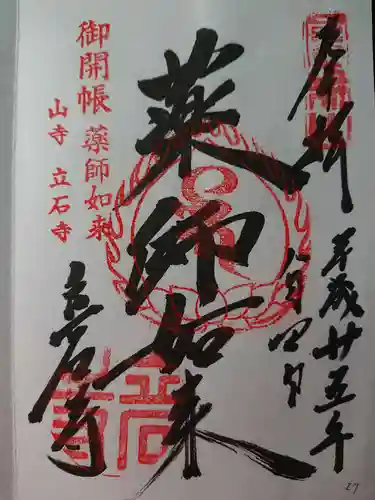 奉拝
平成廿五年
八月四日
薬師如来
御開帳 薬師如来
山寺 立石寺
立石寺
27